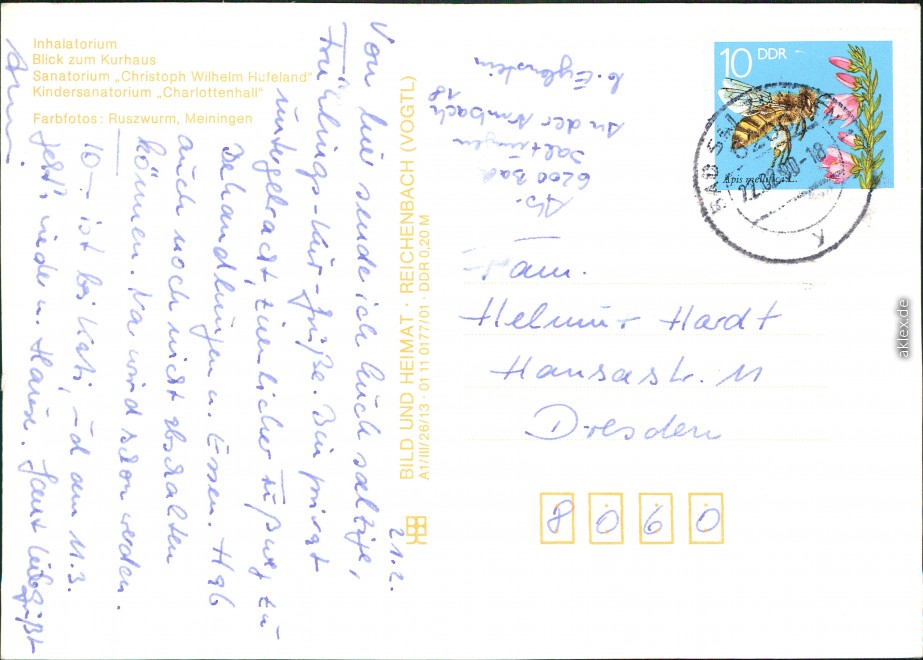 Inhalatorium
Blick zum Kurhaus
Sanatorium „Christoph Wilhelm Hufeland"
Kindersanatorium „Charlottenhall"
Farbfotos: Ruszwurm, Meiningen
21.2.
Von hier sende ich Euch salzige,
Frühlings-Kur-Grüße. Bin privat
untergebracht, ziemlicher Fußweg zu
Behandlungen u. Essen. Hab
auch noch nicht abschalten
können. Na wird schon werden.
10- ist bei Kati, d am 11.3.
jetzt wieder n. Hause. Ganz lieb grüßt
BILD UND HEIMAT · REICHENBACH (VOGTL)
A1/III/26/13 · 01 11 0177/01 · DDR 0,20 M
Abs.
6200 Bad
Salzungen
An der Armbach
18
10 DDR
Apis mellifica L.
BAD SAL
Fam.
Helmut Hardt
Hansastr. 11
Dresden
8060
aklex.de